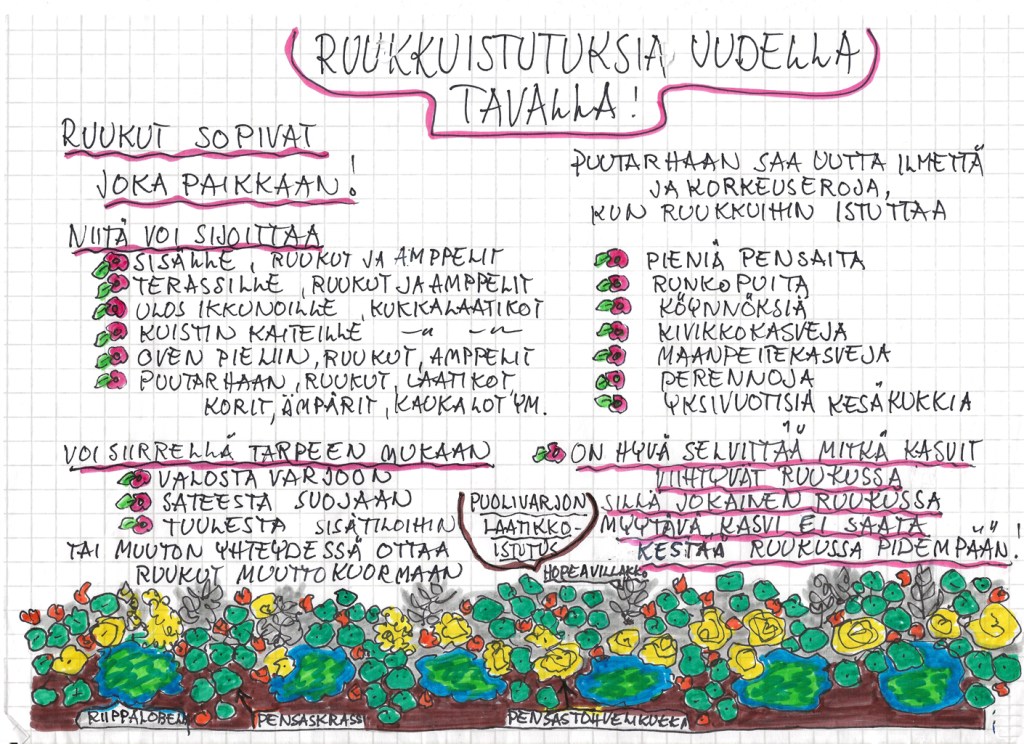 RUUKKUISTUTUKSIA UUDELLA
TAVALLA!
RUUKUT SOPIVAT
JOKA PAIKKAAN!
NIITÄ VOI SIJOITTAA
SISÄLLE, RUUKUT JA AMPPELIT
TERASSILLE, RUUKUT JA AMPPELIT
ULOS IKKUNOILLE, KUKKALAATIKOT
KUISTIN KAITEILLE —"— —"—
OVEN PIELIIN, RUUKUT, AMPPELIT
PUUTARHAAN, RUUKUT, LAATIKOT,
KORIT, ÄMPÄRIT, KAUKALOT YM.
VOI SIIRRELLÄ TARPEEN MUKAAN
VALOSTA VARJOON
SATEESTA SUOJAAN
TUULESTA SISÄTILOIHIN
TAI MUUTON YHTEYDESSÄ OTTAA
RUUKUT MUUTTOKUORMAAN
PUUTARHAAN SAA UUTTA ILMETTÄ
JA KORKEUSEROJA,
KUN RUUKKUIHIN ISTUTTAA
PIENIÄ PENSAITA
RUNKOPUITA
KÖYNNÖKSIÄ
KIVIKKOKASVEJA
MAANPEITEKASVEJA
PERENNOJA
YKSIVUOTISIA KESÄKUKKIA
ON HYVÄ SELVITTÄÄ MITKÄ KASVIT
VIIHTYVÄT RUUKUSSA
SILLÄ JOKAINEN RUUKUSSA
MYYTÄVÄ KASVI EI SAATA
KESTÄÄ RUUKUSSA PIDEMPÄÄN!
PUOLIVARJON
LAATIKKO-
ISTUTUS
HOPEAVILLAKKO
RIIPPALOBELIA
PENSASKRASSI
PENSASTOHVELIKUKKA